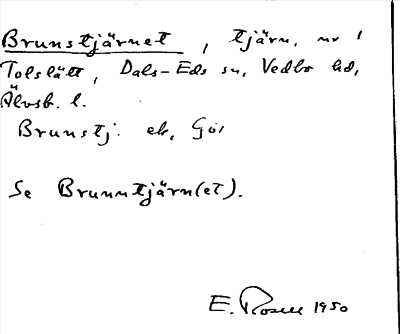 Brunstjärnet, tjärn, nr 1
Tolslätt, Dals-Eds sn, Vedbo hd,
Älvsb. l.
Brunstj. ek,
Se Brunntjärn(et).
E. Rosell 1950